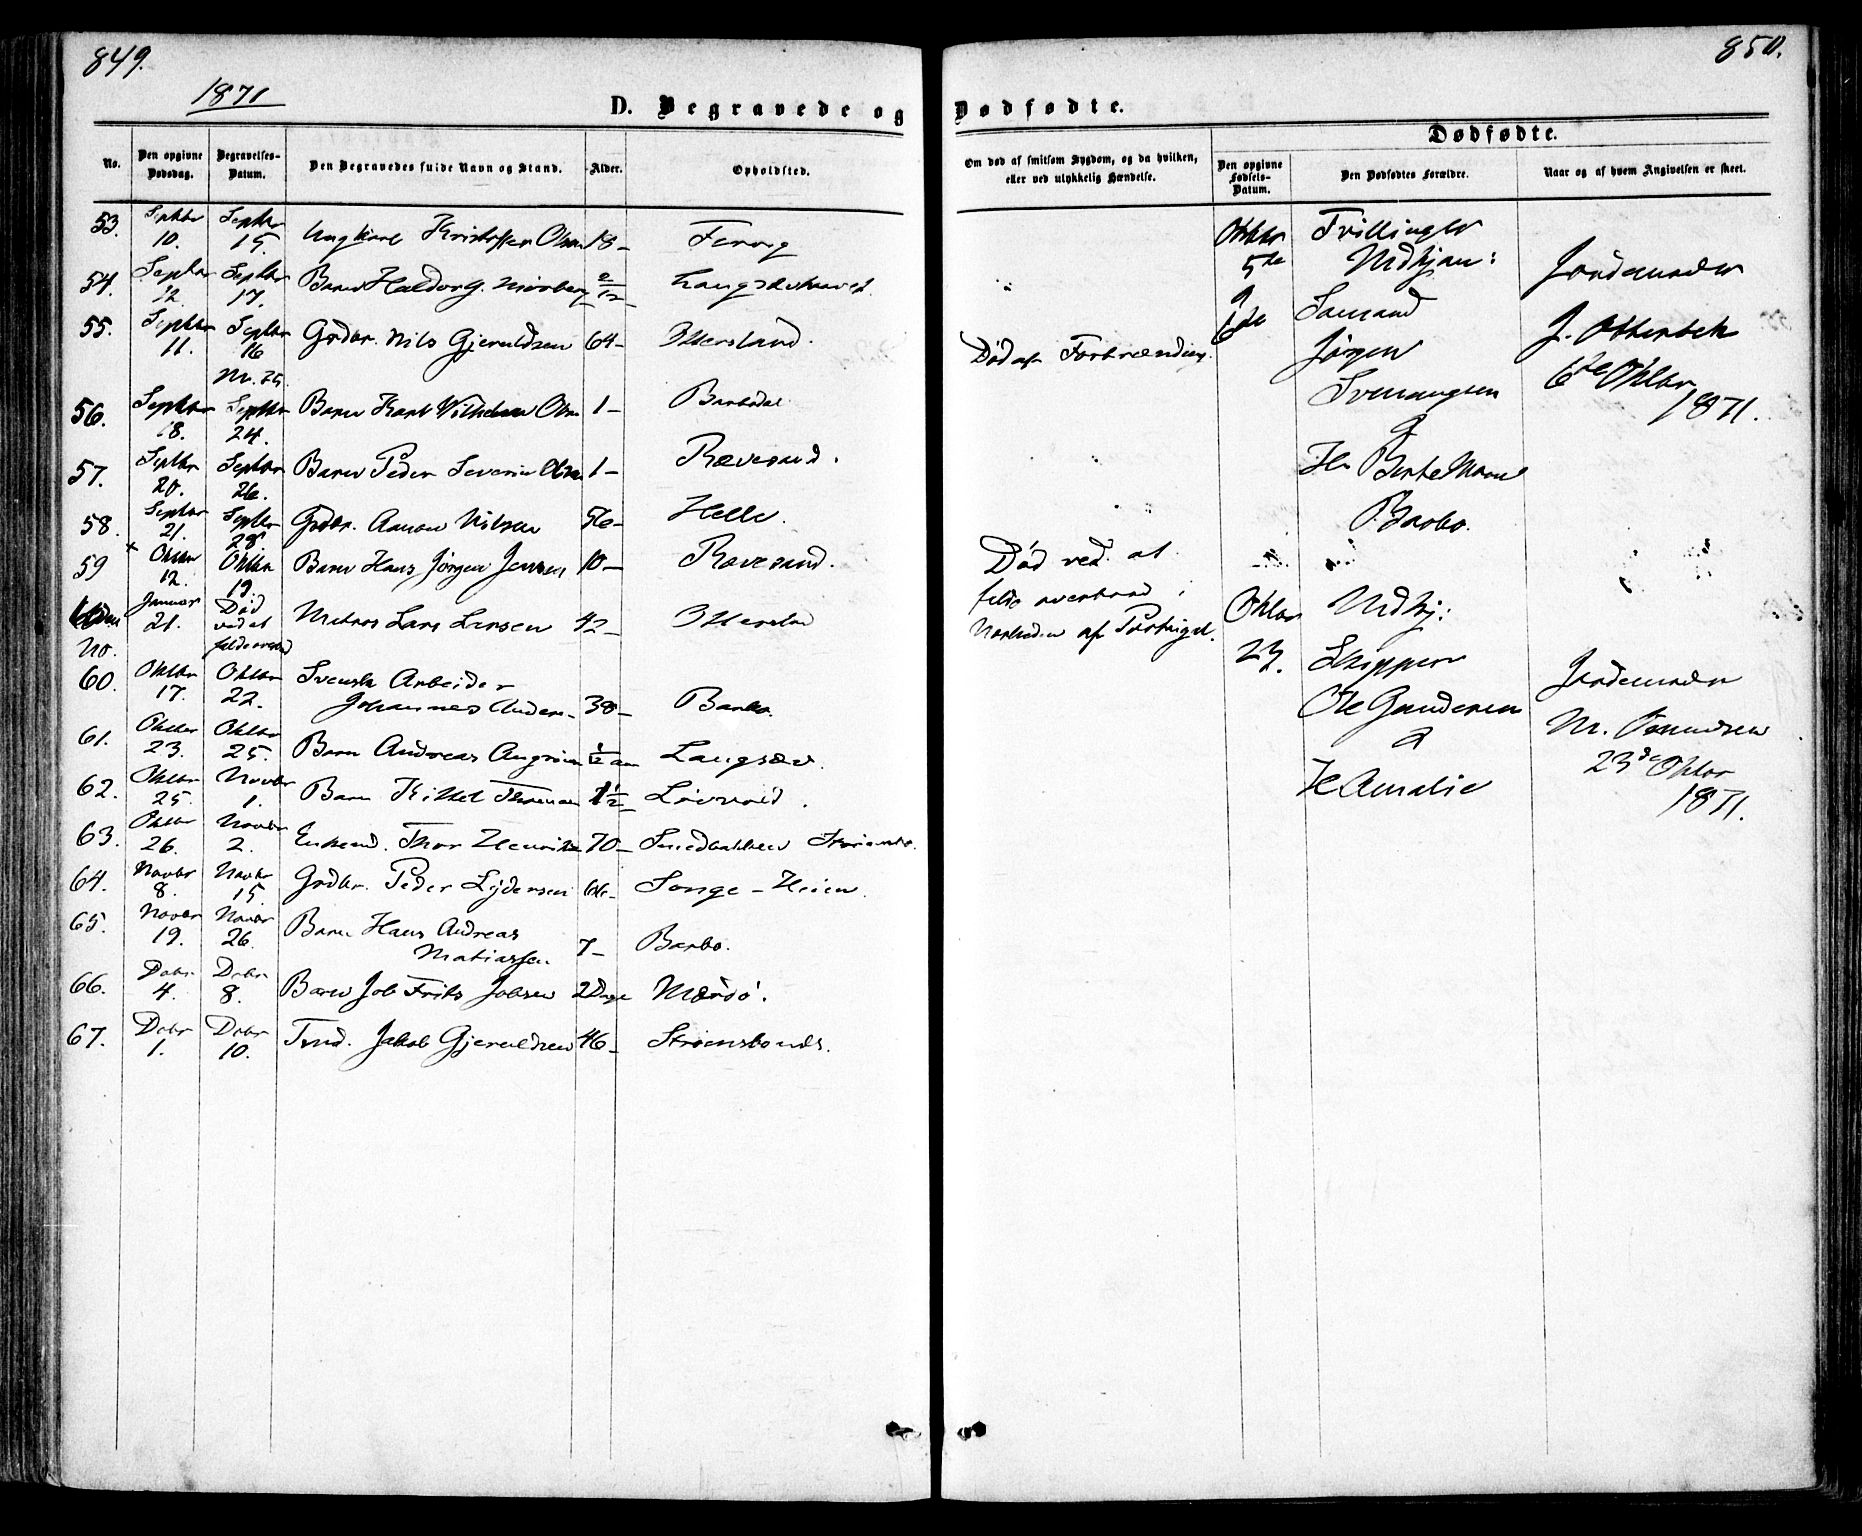 849.
1871
D. Begravede og
No.
Den opgivne Dødsdag.
Begravelses-Datum.
Den Begravedes fulde Navn og Stand.
Alder.
Opholdsted.
53. Septbr 10. Septbr 15. Ungkarl Kristoffer Olsen 18 –
54. Septbr 12. Septbr 17. Barn 2/12 –
55. Septbr 11. Septbr 16 Grdbr. Nils Gjeruldsen 64 –
56. Septbr 18. Septbr 24. Barn Karl Vilhelm Olsen 1 – Barbodal
57. Septbr 20. Septbr 26. Barn Peder Severin Olsen 1 – Rævesand.
58. Septbr 21. Septbr 28 Grdbr. Aanon Nilsen 56 – Helle.
59 Oktbr 12. Oktbr 19. Barn Hans Jørgen Jensen 10 – Rævesand.
Uden No. Januar 21. Død ved at falde overbord Matros Lars Larsen 42 –
60. Oktbr 17. Oktbr 22. Svensk Arbeider
Johannes Anders. 38 – Barbo.
61. Oktbr 23. Oktbr 25. Barn Andreas Langsæv.
62. Oktbr 25. Novbr 1. Barn Kittel 1 1/2 – Løvvold.
63. Oktbr 26. Novbr 2. Enkemd. Thor Henriks 70 – Smedbakken
64. Novbr 8. Novbr 15. Grdbr. Peder Lydersen 66 – Songe – Heien.
65. Novbr 19. Novbr 26. Barn Hans Andreas
Matiassen. 7 – Barbo.
66. Debr 4. Debr 8. Barn Job Frits Jobsen 2 Dage Mærdø.
67. Debr 1. Debr 10. Tmd. Jakob Gjeruldsen 46 – Strømsbonds.
850.
Dødfødte.
Dødfødte.
Om død af smitsom Sygdom, og da hvilken, eller ved ulykkelig Hændelse.
Den opgivne Fødsels-Datum.
Den Dødfødtes Forældre.
Naar og af hvem Angivelsen er skeet.
Oktbr 5te & 6te
Tvillinger
Udhjan:
Samand
Jørgen
Svenaugsen
&
H. Berte Marie
Barbo.
Jordemoder
J. Otterbek
6te Oktbr
1871.
Død af Forbrænding.
Død ved at
falde overbord i
Nærheden af Portugal.
Oktbr
23.
Udhj:
Skipper
Ole Gundersen
&
H Amalie
Jordemoder
M. Osmundsen
23de Oktbr
1871.